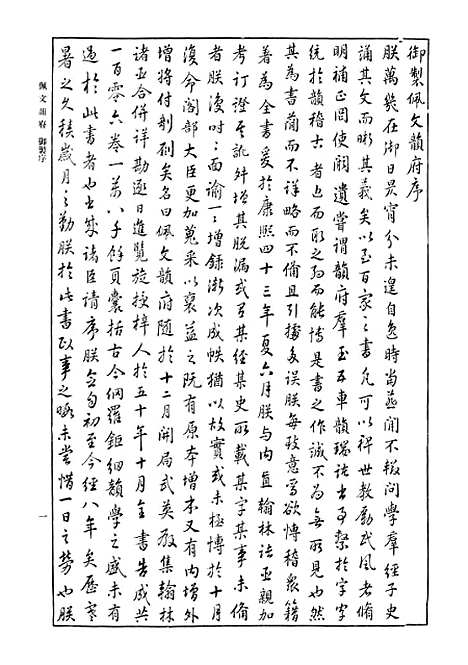 御製佩文韻府序
朕萬幾在御日昃宵分未遑自逸時當燕閒不輟問學羣經子史
誦其文而晰其義矣以至百家之書凡可以裨世教勵武風者脩
明補正罔使闕遺嘗謂韻府羣玉五車韻瑞諸書事繫於字字
統於韻稽古者近而取之約而能博是書之作誠不為無所見也然
其為書簡而不詳略而不備且引據多誤朕每致意焉欲博稽衆籍
著為全書爰於康熙四十三年夏六月朕與內直翰林諸臣親加
考訂證其訛舛增其脫漏或有某經某史所載某字某事未備
者朕復時時面諭一一增錄漸次成帙猶以故實或未極博於十月
復命閣部大臣更加蒐采以裒益之既有原本增本又有內增外
增將付剞劂矣名曰佩文韻府隨於十二月開局武英殿集翰林
諸臣合併詳勘逐日進覽旋授梓人於五十年十月全書告成共
一百零六卷一萬八千餘頁囊括古今網羅鉅細韻學之盛未有
過於此書者也書成諸臣請序朕念勾初至今經八年矣歷寒
暑之久積歲月之勤朕於此書政事之暇未嘗惜一日之勞也朕
佩文韻府 御製序
一